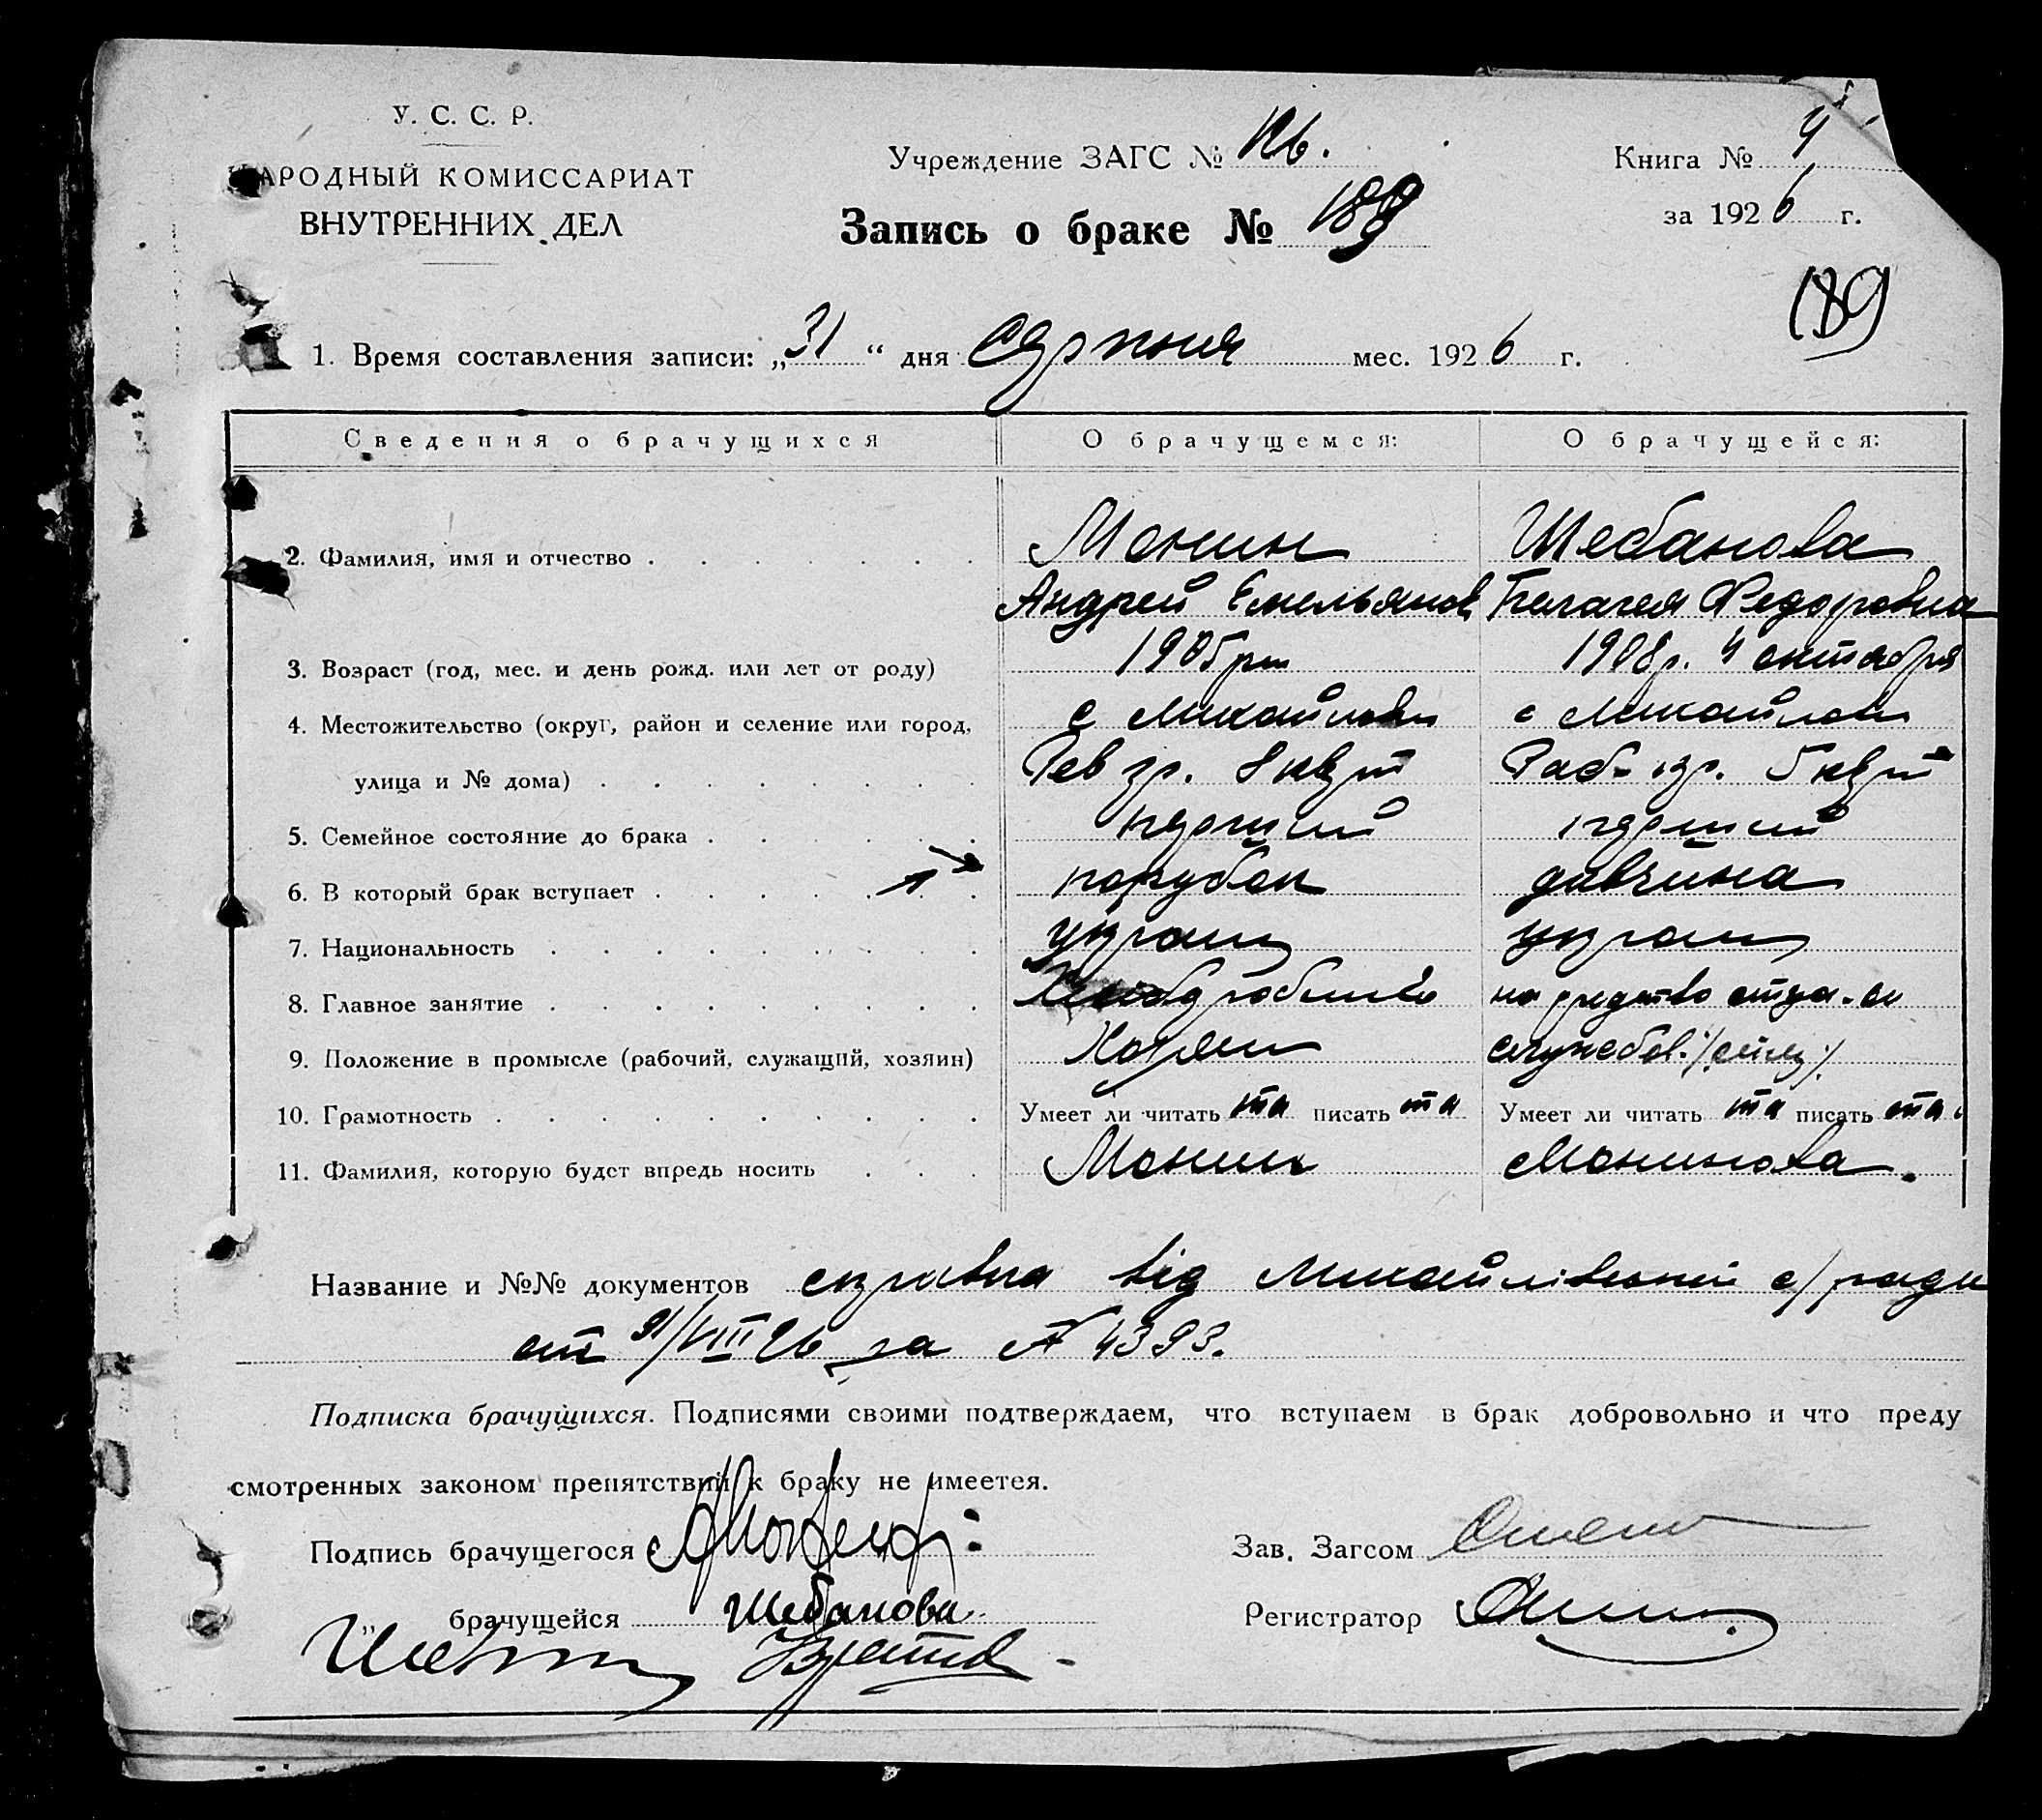 У. С. С. Р.
НАРОДНЫЙ КОМИССАРИАТ
ВНУТРЕННИХ ДЕЛ
Учреждение ЗАГС №
Запись о браке № 189
Книга № 4
за 1926 г.
189
1. Время составления записи: „31“ дня Серпня мес. 1926 г.
Сведения о брачущихся О брачущемся: О брачущейся:
2. Фамилия, имя и отчество Монин Шебанова
Андрей Емельянов Пелагея Федоровна
3. Возраст (год, мес. и день рожд. или лет от роду) 1905 1908 р. 4 октября
4. Местожительство (округ, район и селение или город, с с
улица и № дома) Рев гр. 8 Раб. гр. 5
5. Семейное состояние до брака перший перший
6. В который брак вступает парубок дивчина
7. Национальность
8. Главное занятие
9. Положение в промысле (рабочий, служащий, хозяин)
10. Грамотность Умеет ли читать та писать та Умеет ли читать та писать та
11. Фамилия, которую будет впредь носить Монин Монинова
Название и №№ документов справка від Михайлівської с/ради
от 31/VIII 26 за № 4393.
Подписка брачущихся. Подписями своими подтверждаем, что вступаем в брак добровольно и что преду
смотренных законом препятствий к браку не имеется.
Подпись брачущегося
Зав. Загсом
„ брачущейся Шебанова
Регистратор